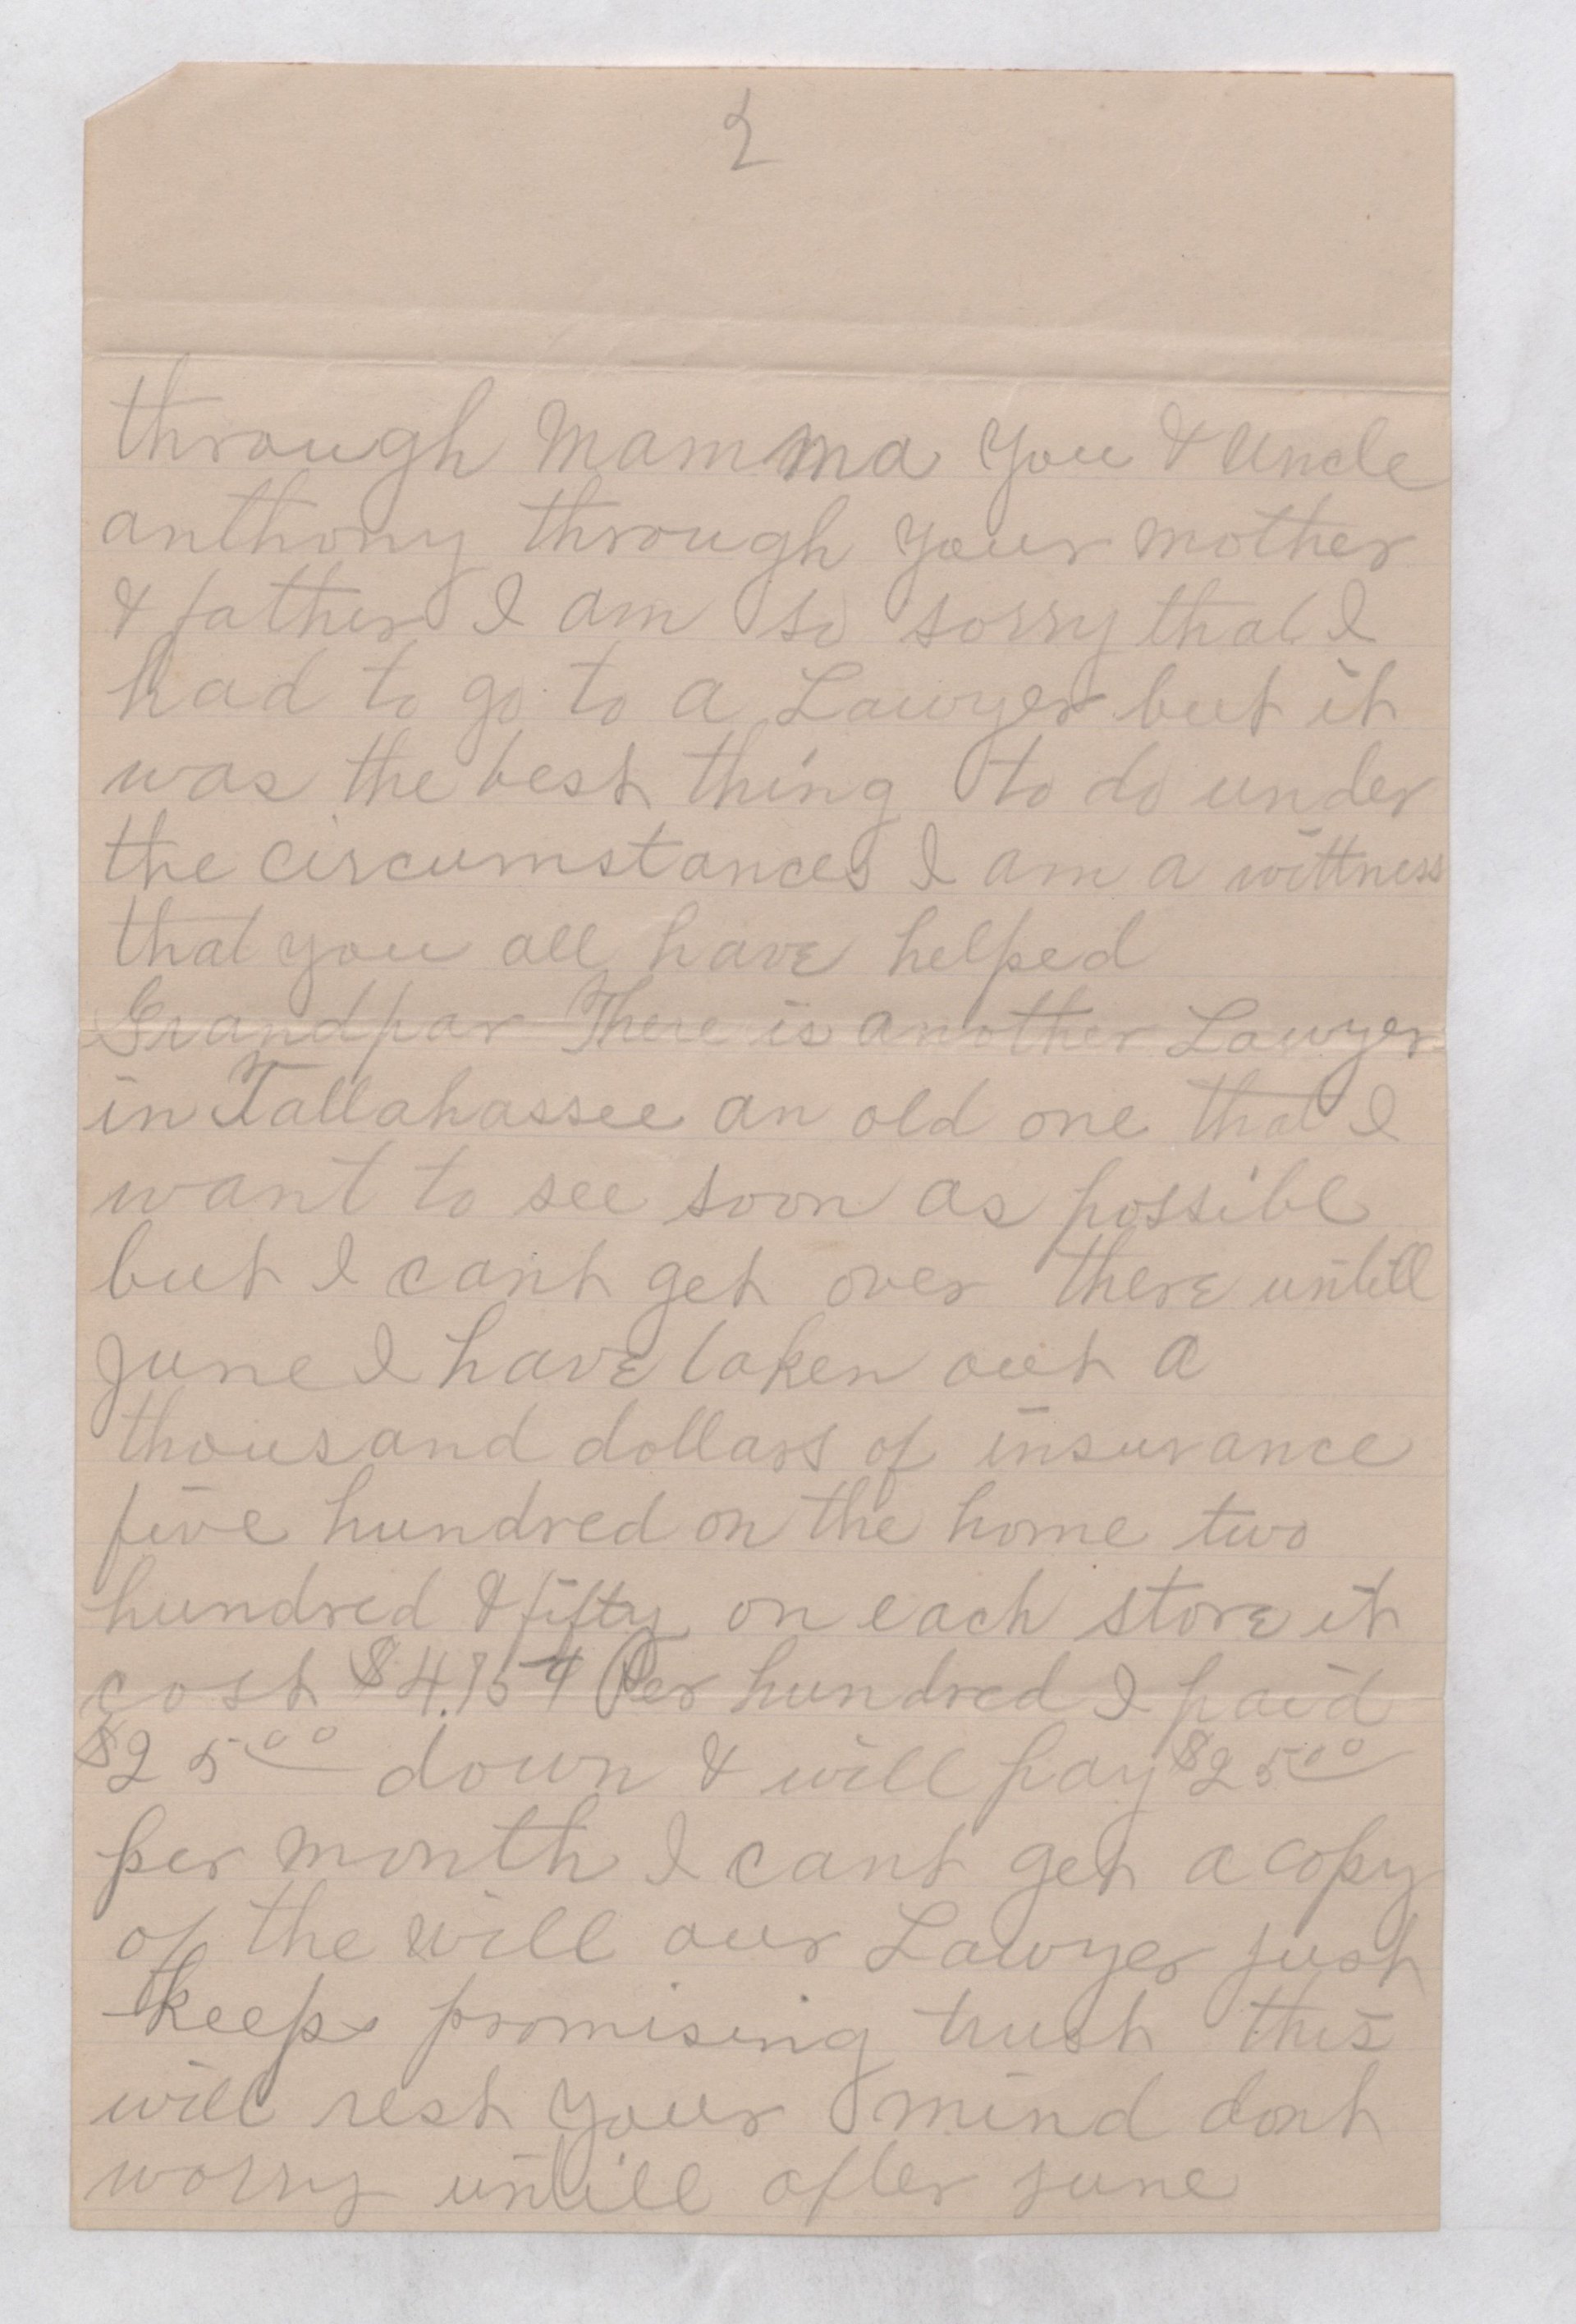 2
through Mamma you & Uncle
anthony through your mother
& father I am so sorry that I
had to go to a Lawyer but it
was the best thing to do under
the circumstances I am a wittness
that you all have helped
Grandpar There is another Lawyer
in Tallahassee an old one that I
want to see soon as possible
but I cant get over there untill
June I have taken out a
thousand dollars of insurance
five hundred on the home two
hundred & fifty on each store it
cost $4.75 Per hundred I paid
$25.00 down & will pay $25.00
per month I cant get a copy
of the will our Lawyer just
keeps promising trust this
will rest your mind dont
worry untill after june